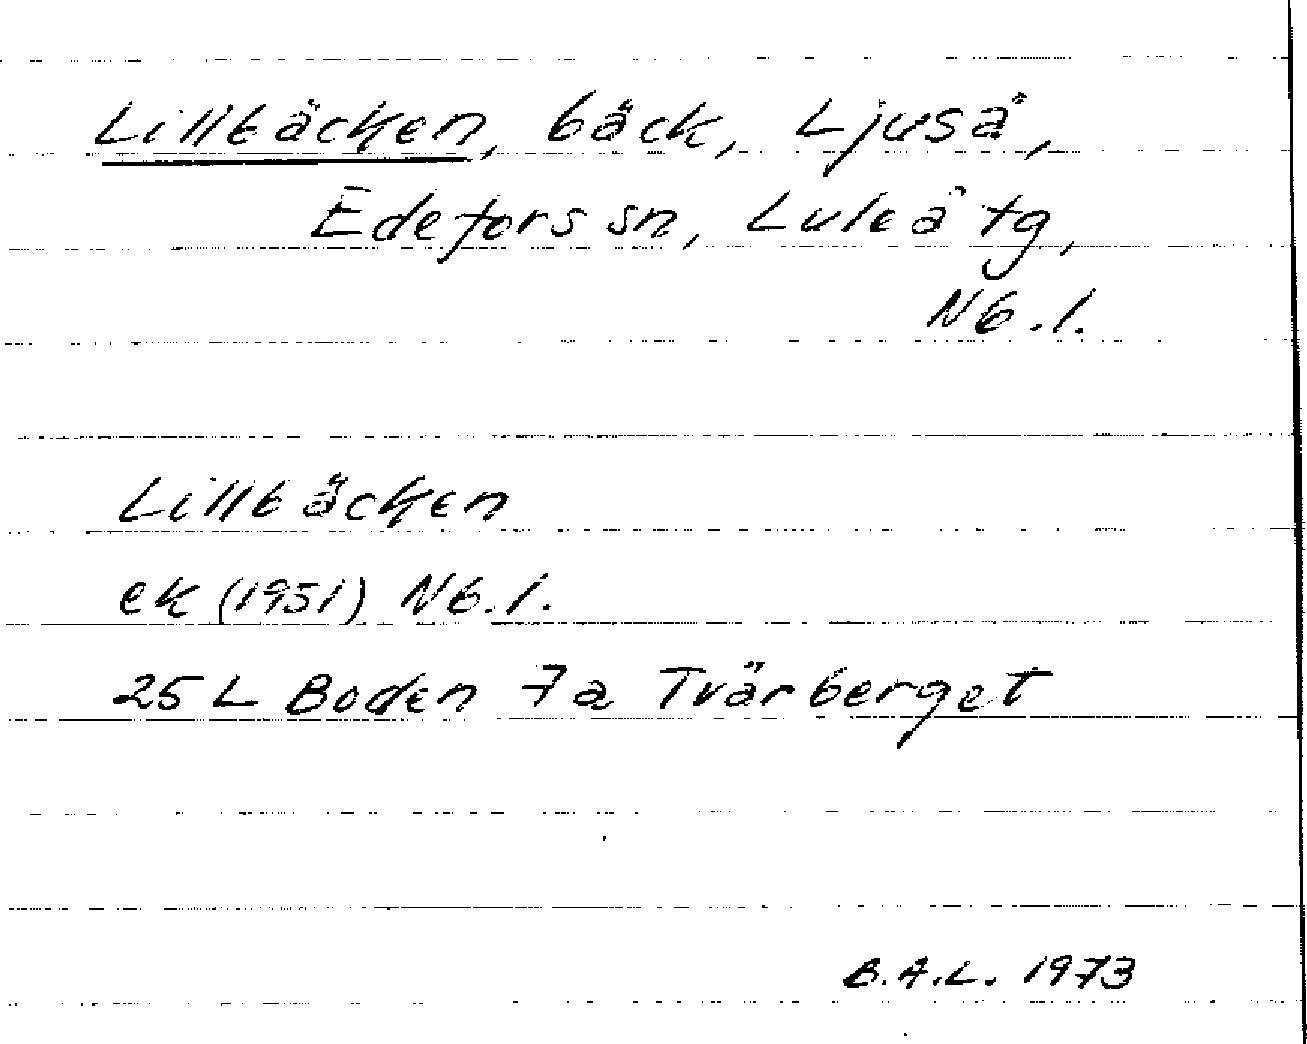 Lillbäcken, bäck, Ljuså,
Edefors sn, Luleå tg,
Nb.l.
Lillbäcken
ek (1951) Nb.l.
25 L Boden 7a Tvärberget
B.A.L. 1973